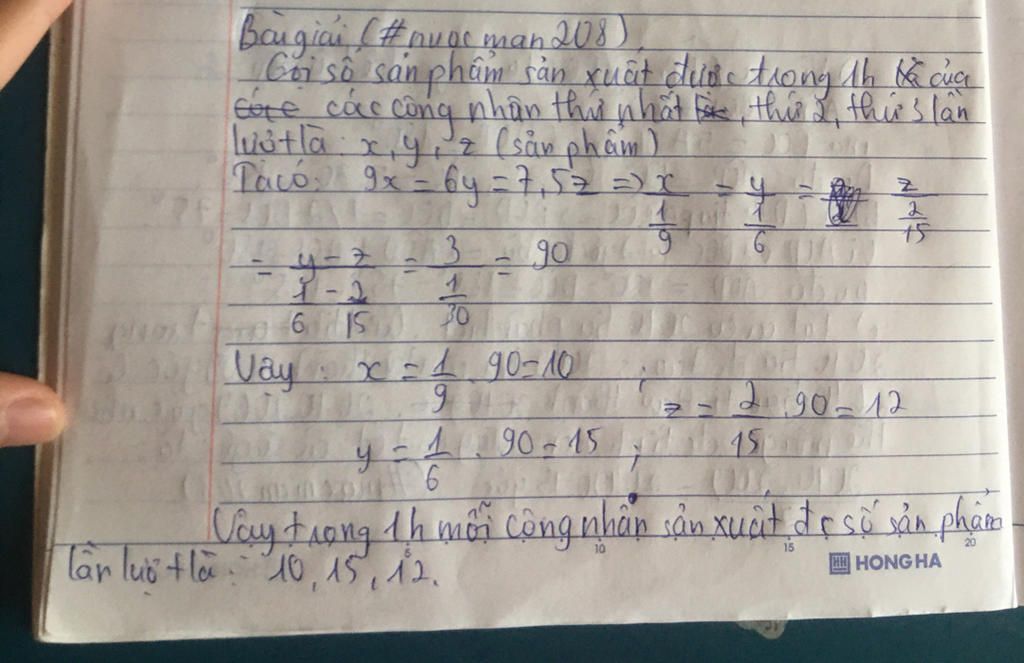 Bài giải (#nuoc man 208)
Gọi số sản phẩm sản xuất được trong 1h của
các công nhân thứ nhất, thứ 2, thứ 3 lần
lượt là: x, y, z (sản phẩm)
Ta có: 9x = 6y = 7,5z => x/(1/9) = y/(1/6) = z/(2/15)
= (y - z)/(1/6 - 2/15) = 3/(1/30) = 90
Vậy: x = 1/9 . 90 = 10 ;
z = 2/15 . 90 = 12
y = 1/6 . 90 = 15 ;
Vậy trong 1h mỗi công nhân sản xuất đc số sản phẩm
5 10 15 20
lần lượt là: 10, 15, 12.
HH HONG HA